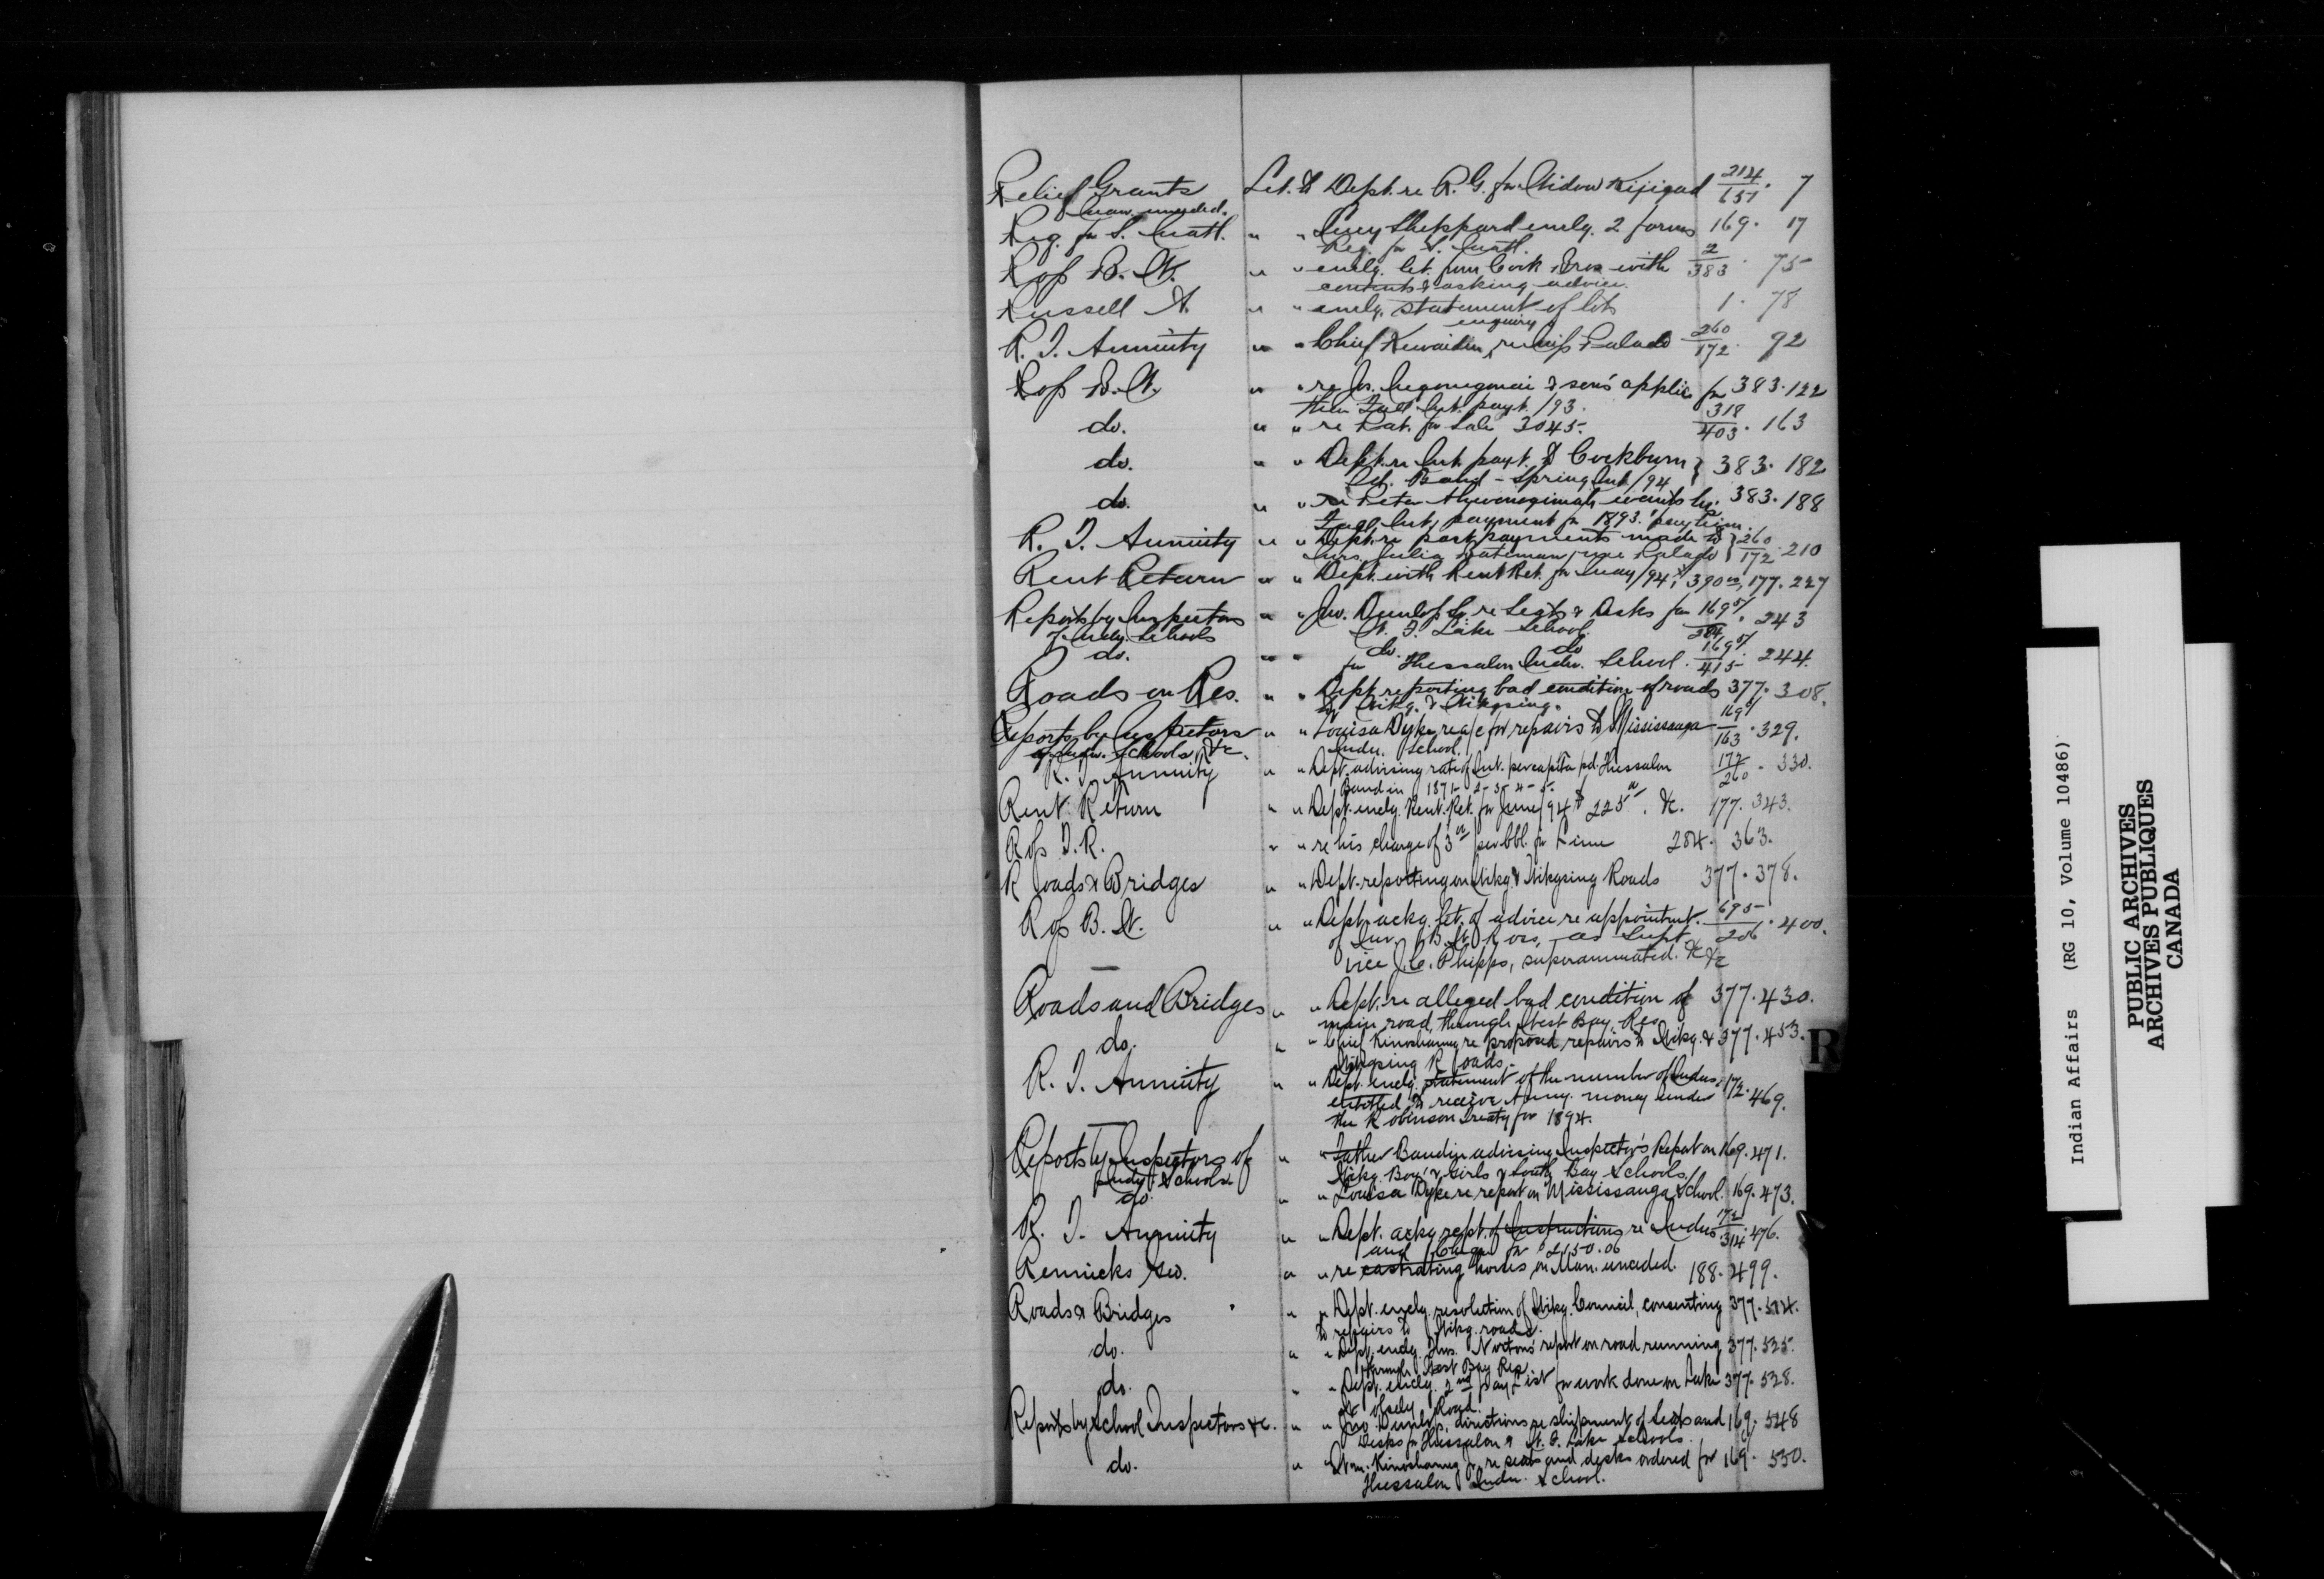 Relief Grants Let. to Dept. re R. G. for Widow Kijigad 214/657 . 7
Man. unceded.
Reg. for S. Matl. " " Lucy Sheppard encly. 2 forms 169 . 17
Req. for S. Matl.
Ross B. W. " " encly. let. from Cook Bros with 2/383 . 75
contents & asking advice.
Russell A. " " encly. statement of lots 1 . 78
enquiry
R. T. Annuity " " Chief Kewaidin, re Miss Palado 260/172 . 92
Ross B. W. " " re & son's applic. for 383 . 122
their Fall Int. payt. /93.
do. " " re Pat. for Sale 3045. 318/403 . 163
do. " " Dept. re Int. payt. to Cockburn } 383 . 182
Isl. Band - Spring Int. /94
do. " " re Peter wants his 383 . 188
Fall Int. payment for 1893. pay him.
R. T. Annuity " " Dept. re past payments made to } 260/172 . 210
Mrs. Julia Bateman, née Palado
Rent Return " " Dept. with Rent Ret. for May /94, & 390.00, 177 . 227
Reports by Inspectors " " Jno. Dunlop Sr. re Seats & Desks for 169 5/ 384 . 243
of Indn. Schools W. F. Lake School.
do. " " do. do 169 5/ 415 . 244.
for Thessalon Indn. School.
Roads on Res. " " Dept. reporting bad condition of roads 377 . 308.
on Wikg. & Wikgsing.
Reports by Inspectors " " Louisa Dyke re a/c for repairs to Mississauga 169 5/ 163 . 329.
of Indn. Schools, &c. Indn. School.
R. T. Annuity " " Dept. advising rate of Int. per capita pd. Thessalon 172/260 . 330.
Band in 1871-2-3-4-5.
Rent Return " " Dept. encly. Rent. Ret. for June /94 & 225.00. &c. 177 . 343.
Ross T. R. " " re his charge of 3.00 per bbl. for Lime 284 . 363.
Roads & Bridges " " Dept. reporting on Wikg. & Wikgsing Roads 377 . 378.
Ross B. W. " " Dept. ackg. let. of advice re appointmt. 695/206 . 400.
of B. W. Ross, as Supt.
vice J. C. Phipps, superannuated. &c &c
Roads and Bridges " " Dept. re alleged bad condition of 377 . 430.
main road, through West Bay Res.
do. " " Chief Kinoshameg re proposed repairs to Wikg. & 377 . 453.
Wikgsing Roads.
R. T. Annuity " " Dept. encly. statement of the number of Indns. 172 . 469.
entitled to receive Anny. money under
the Robinson Treaty for 1894.
Reports by Inspectors of " " Father Baudin advising Inspector's Report on 169 . 471.
Indn. Schools Wikg. Boys' & Girls & South Bay Schools
do. " " Louisa Dyke re report on Mississauga School. 169 . 473.
R. T. Annuity " " Dept. ackg. rept. of Instructions re Indns. 172/314 . 476.
and Cheque for $2150.06
Rennicks Geo. " " re castrating horses on Man. unceded. 188 . 499.
Roads & Bridges " " Dept. encly. resolution of Wikg. Council, consenting 377 . 524.
to repairs to Wikg. roads.
do. " " Dept. encly. Thos. Norton's report on road running 377 . 525.
through West Bay Res.
do. " " Dept. encly. 2nd Pay List for work done on Lake 377 . 528.
Wolsely Road.
Reports by School Inspectors &c. " " Jno Dunlop, directions re shipment of Seats and 169 . 548
Desks for Thessalon & W. F. Lake Schools.
do. " " Wm. Kinoshameg Jr. re seats and desks ordered for 169 . 550.
Thessalon Indn. School.
R
Indian Affairs (RG 10, Volume 10486)
PUBLIC ARCHIVES
ARCHIVES PUBLIQUES
CANADA